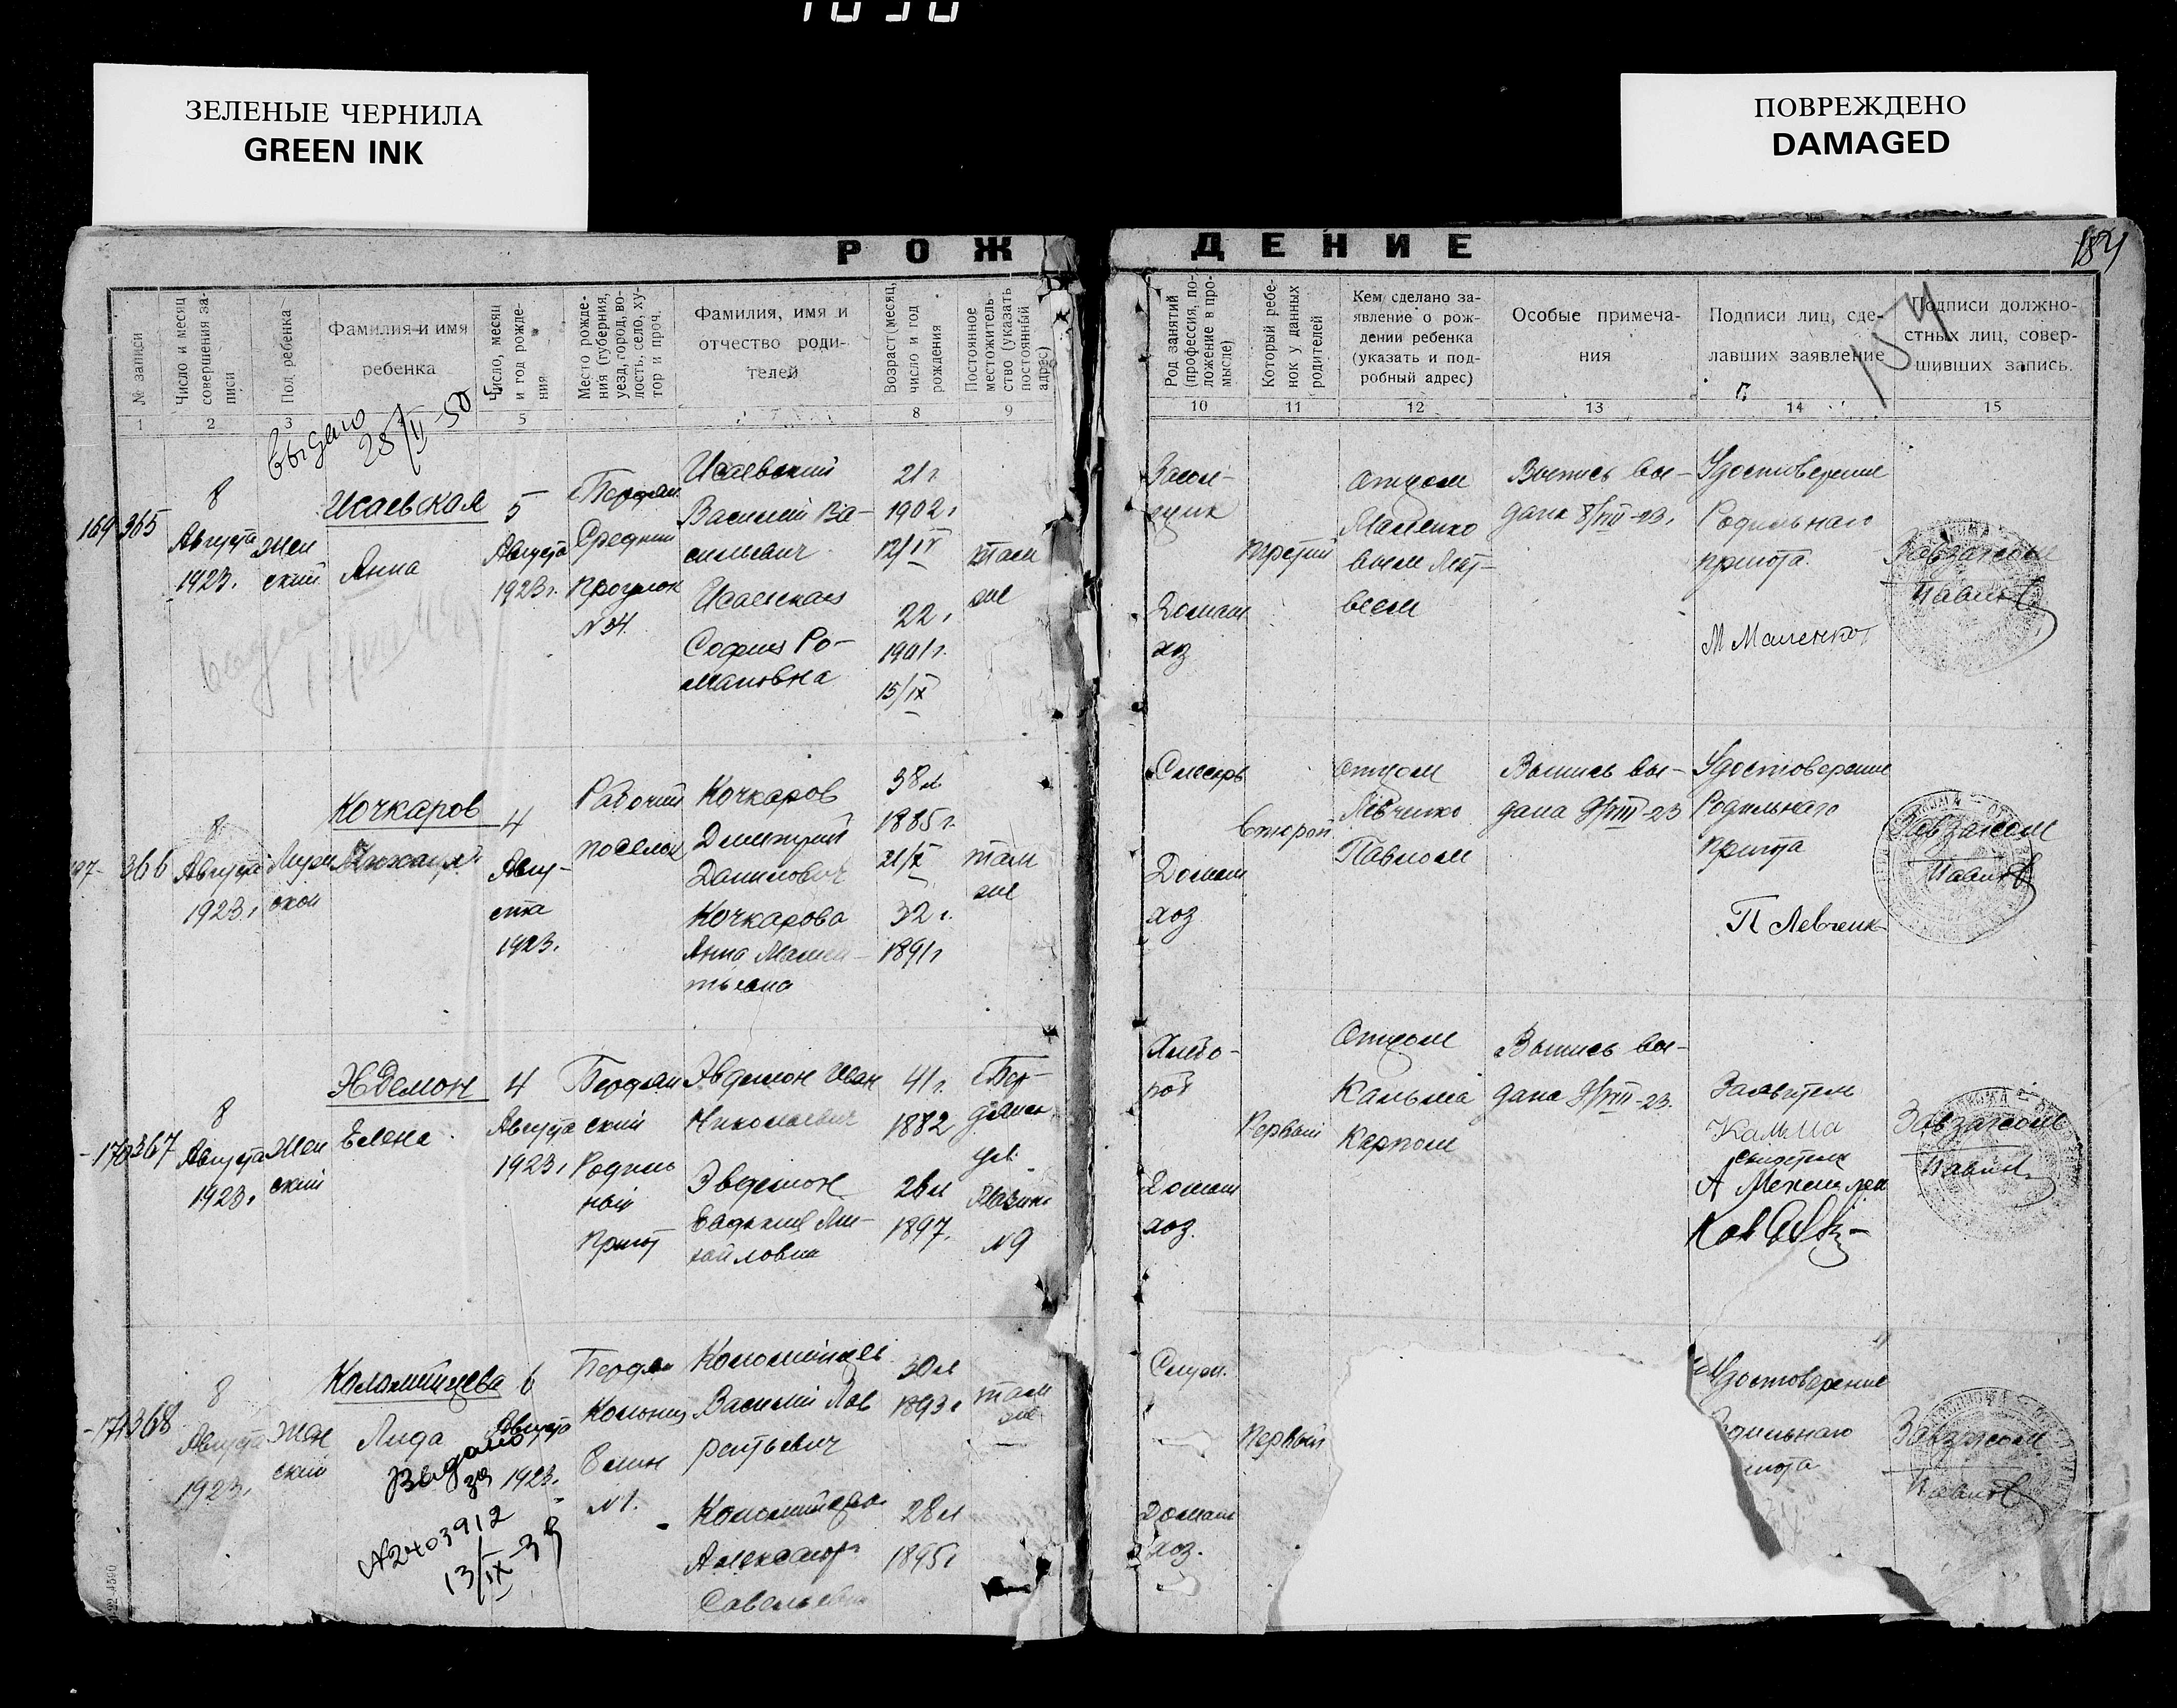 ЗЕЛЕНЫЕ ЧЕРНИЛА
GREEN INK
ПОВРЕЖДЕНО
DAMAGED
РОЖДЕНИЕ
184
№ записи
Число и месяц совершения записи
Пол ребенка
Фамилия и имя
ребенка
Число, месяц и год рождения
Место рождения (губерния, уезд, город, волость, село, хутор и проч.
Фамилия, имя и
отчество роди-
телей
Возраст (месяц, число и год рождения
Постоянное местожительство (указать постоянный адрес)
Род занятий (профессия, положение в промысле)
Который ребенок у данных родителей
Кем сделано за-
явление о рож-
дении ребенка
(указать и под-
робный адрес)
Особые примеча-
ния
Подписи лиц, сде-
лавших заявление
Подписи должно-
стных лиц, совер-
шивших запись.
1 2 3 5 8 9 10 11 12 13 14 15
выдано
28/II-50
169 365
8
Августа
1923.
Жен
ский
Исаевская
Анна
5
Августа
1923г.
Бердян.
Средний
Проулок
N 34.
Исаевский
Василий Ва-
сильевич
Исаевская
София Ро-
мановна
21 г
1902г
12/IV
22г
1901г.
15/IX
там
же
Домаш
хоз
третий
отцом
Маленко
вым Мат-
веем
Выпись вы-
дана 8/VIII-23.
Удостоверение
Родильнаго
приюта.
М Маленко
Завзагсом
Павлов
366
8
Августа
1923г
Муж
ской
Кочкаров
4
Авгу-
ста
1923.
Рабочий
поселок
Кочкаров
Дмитрий
Данилович
Кочкарова
Анна
38л
1885г.
21/X
32г.
1891г
там
же
Слесарь
Домаш
хоз
второй
отцом
Левченко
Павлом
Выпись вы-
дана 9/VIII-23
Удостоверение
Родильнаго
приюта
П Левченк
Завзагсом
Павлов
-170 367
8
Августа
1923г
Жен
ский
Елена
4
Августа
1923г
Бердян
ский
Родиль
ный
Приют
Эвдемон Иван
Николаевич
Эвдемон
Евдокия Ми-
хайловна
41г.
1882
26л
1897.
Бер-
дянск
ул.
N 9
Хлебо-
роб
Домаш
хоз.
Первый
Отцом
Кальма
Карпом
Выпись вы-
дана 9/VIII-23.
Заявитель
Кальма
Свидетели
Завзагсом
Павлов
-171 368
8
Августа
1923г
Жен
ский
Коломийцева
Лида
6
Августа
1923г.
Выдано
N2403912
13/IX-39
Бердян
Колония
N 1.
Коломийцев
Василий Лав
рентьевич
Коломийцева
Александр.
Савельевна
30л
1893г
28л
1895г
там
же
Служ.
Домаш
хоз.
Первый
Удостоверение
Завзагсом
Павлов